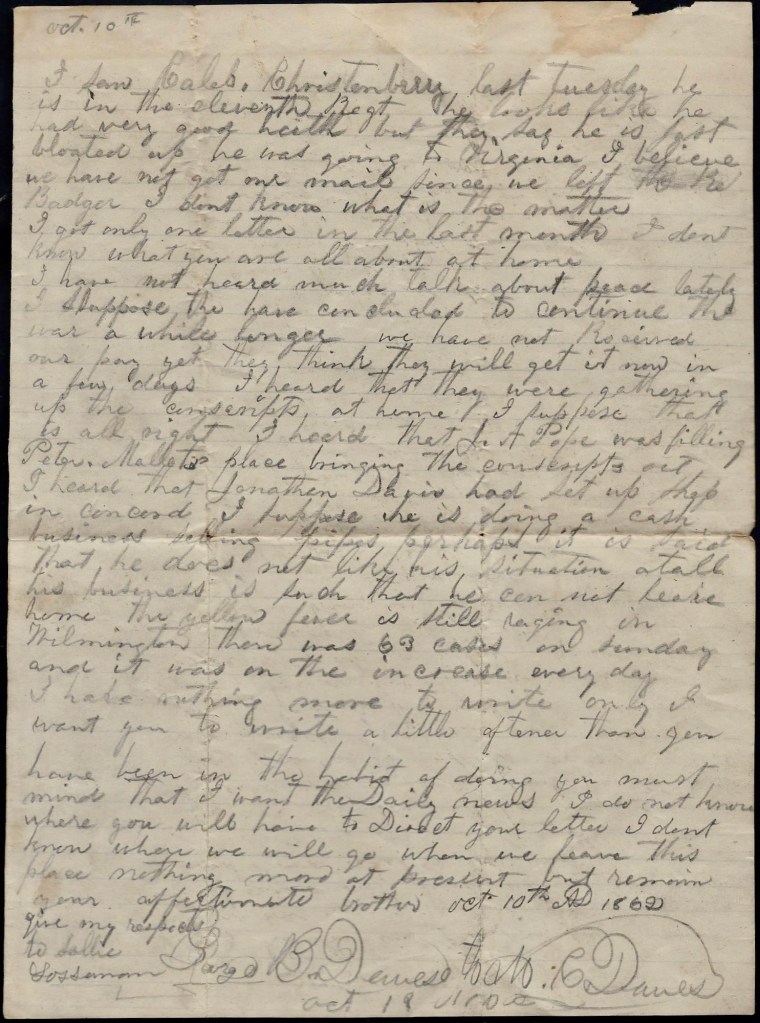 oct. 10th
I saw Caleb. Christenberry last tuesday he
is in the eleventh Regt he looks like he
had very good heelth but they say he is just
bloated up he was going to Virginia I believe
we have not got our mail since we left the
Badger I dont know what is the matter
I got only one letter in the last month I dont
know what you are all about at home
I have not heard much talk about peace lately
I suppose the have concluded to continue the
war a while longer we have not Received
our pay yet they think they will get it now in
a few days I heard that they were gathering
up the conscripts at home I suppose that
is all right I heard that J. A Pope was filling
Peter. place bringing the conscripts out
I heard that Jonathen Davis had set up shop
in concord I suppose he is doing a cash
business selling pipes perhaps it is said
that he does not like his situation atall
his business is such that he can not leave
home the yellow fever is still raging in
Wilmington there was 63 cases on sunday
and it was on the increase every day
I have nothing more to write only I
want you to write a little oftener than you
have been in the habit of doing you must
mind that I want the Daily news I do not know
where you will have to Direct your letter I dont
know where we will go when we leave this
place nothing more at present but remain
your affectionate brother oct 10th AD 1862
give my respects
to Sallie
Sossamon
B. Deweese to W. C Dewees
oct 1